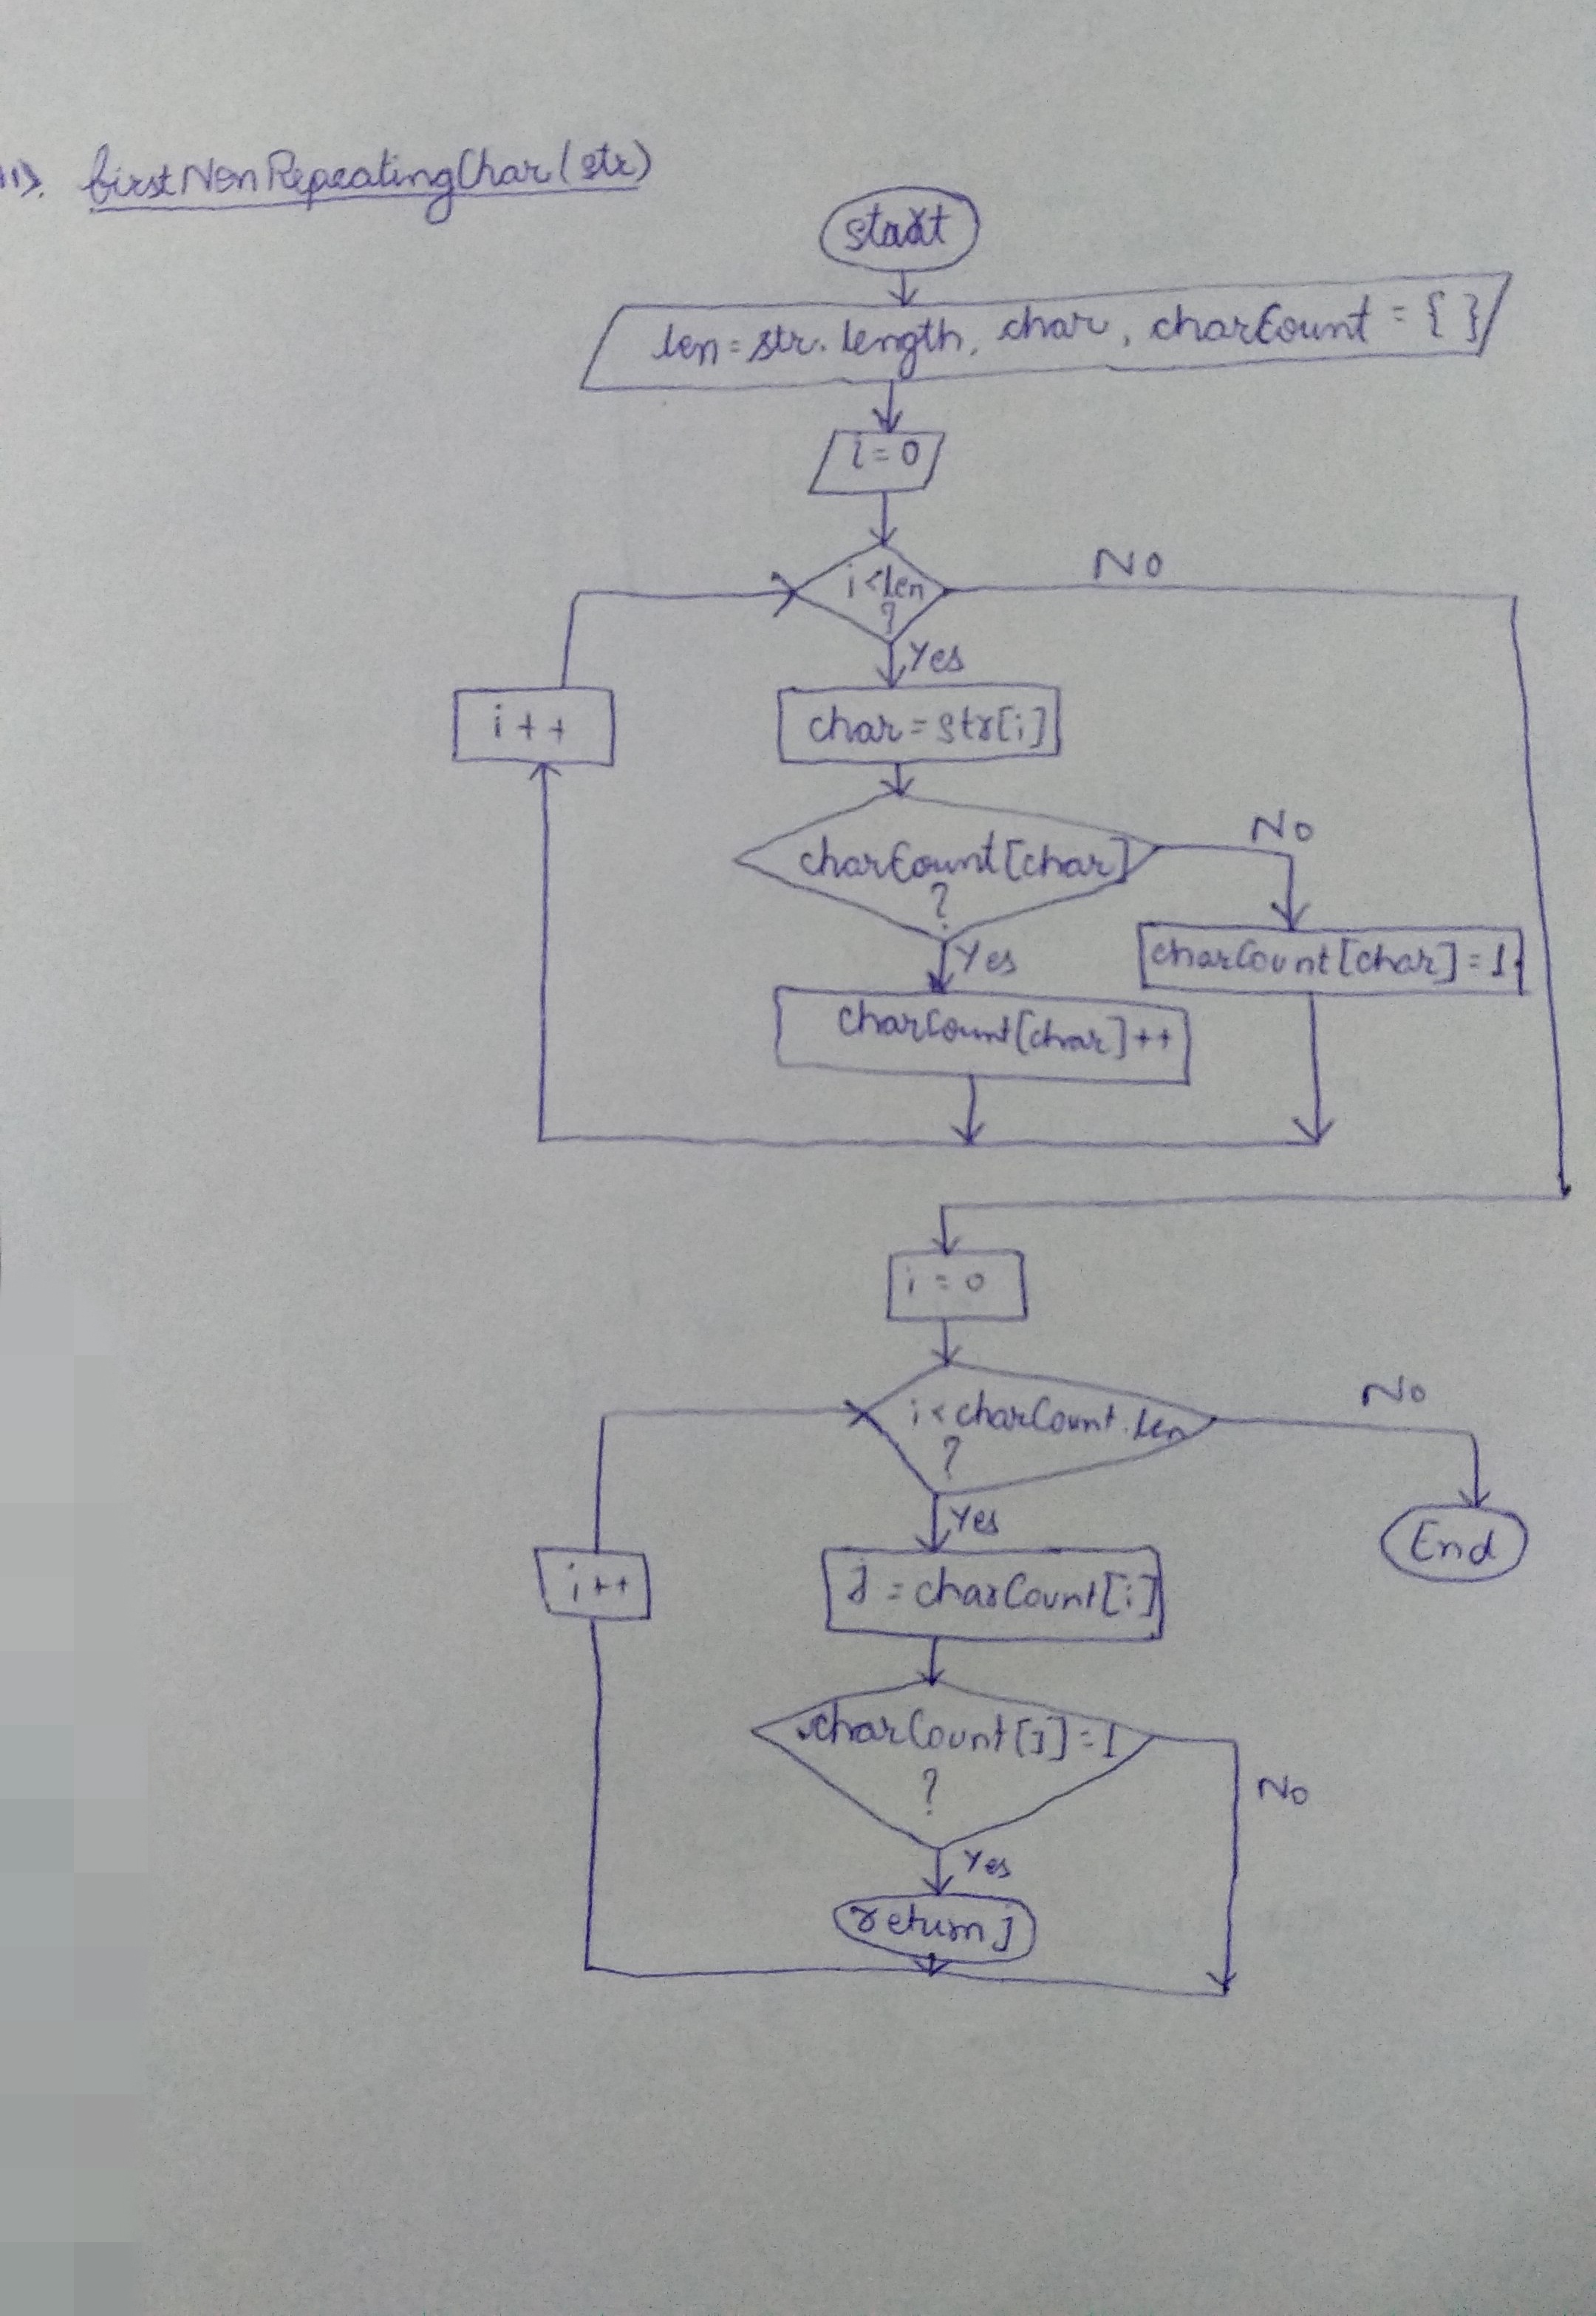 11). firstNonRepeatingChar(str)
start
len=str.length, char, charCount = { }
i=0
i<len
?
NO
Yes
i++
char=str[i]
charCount[char]
?
No
Yes
charCount[char]=1
charCount[char]++
i=0
i<charCount.len
?
No
Yes
End
i++
j=charCount[i]
charCount[j]=1
?
No
Yes
return j